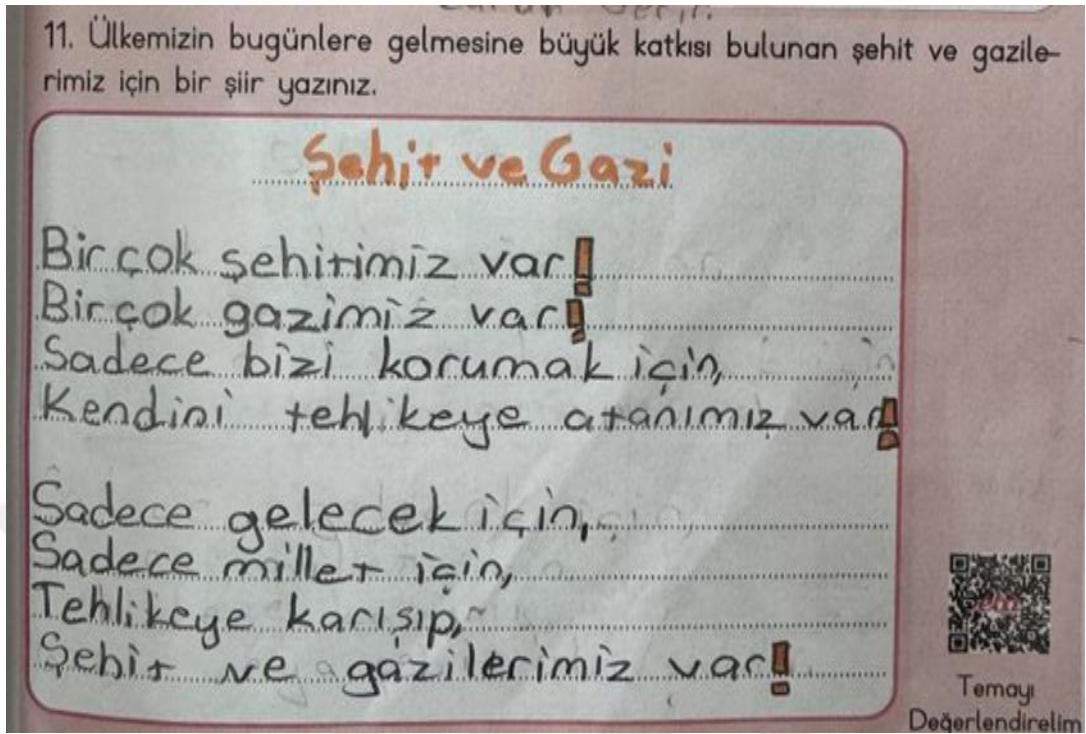 11. Ülkemizin bugünlere gelmesine büyük katkısı bulunan şehit ve gazile-
rimiz için bir şiir yazınız.
Şehit ve Gazi
Bir çok şehitimiz var!
Bir çok gazimiz var!
Sadece bizi korumak için,
Kendini tehlikeye atanımız var!
Sadece gelecek için,
Sadece millet için,
Tehlikeye karışıp,
Şehit ve gazilerimiz var!
Temayı
Değerlendirelim